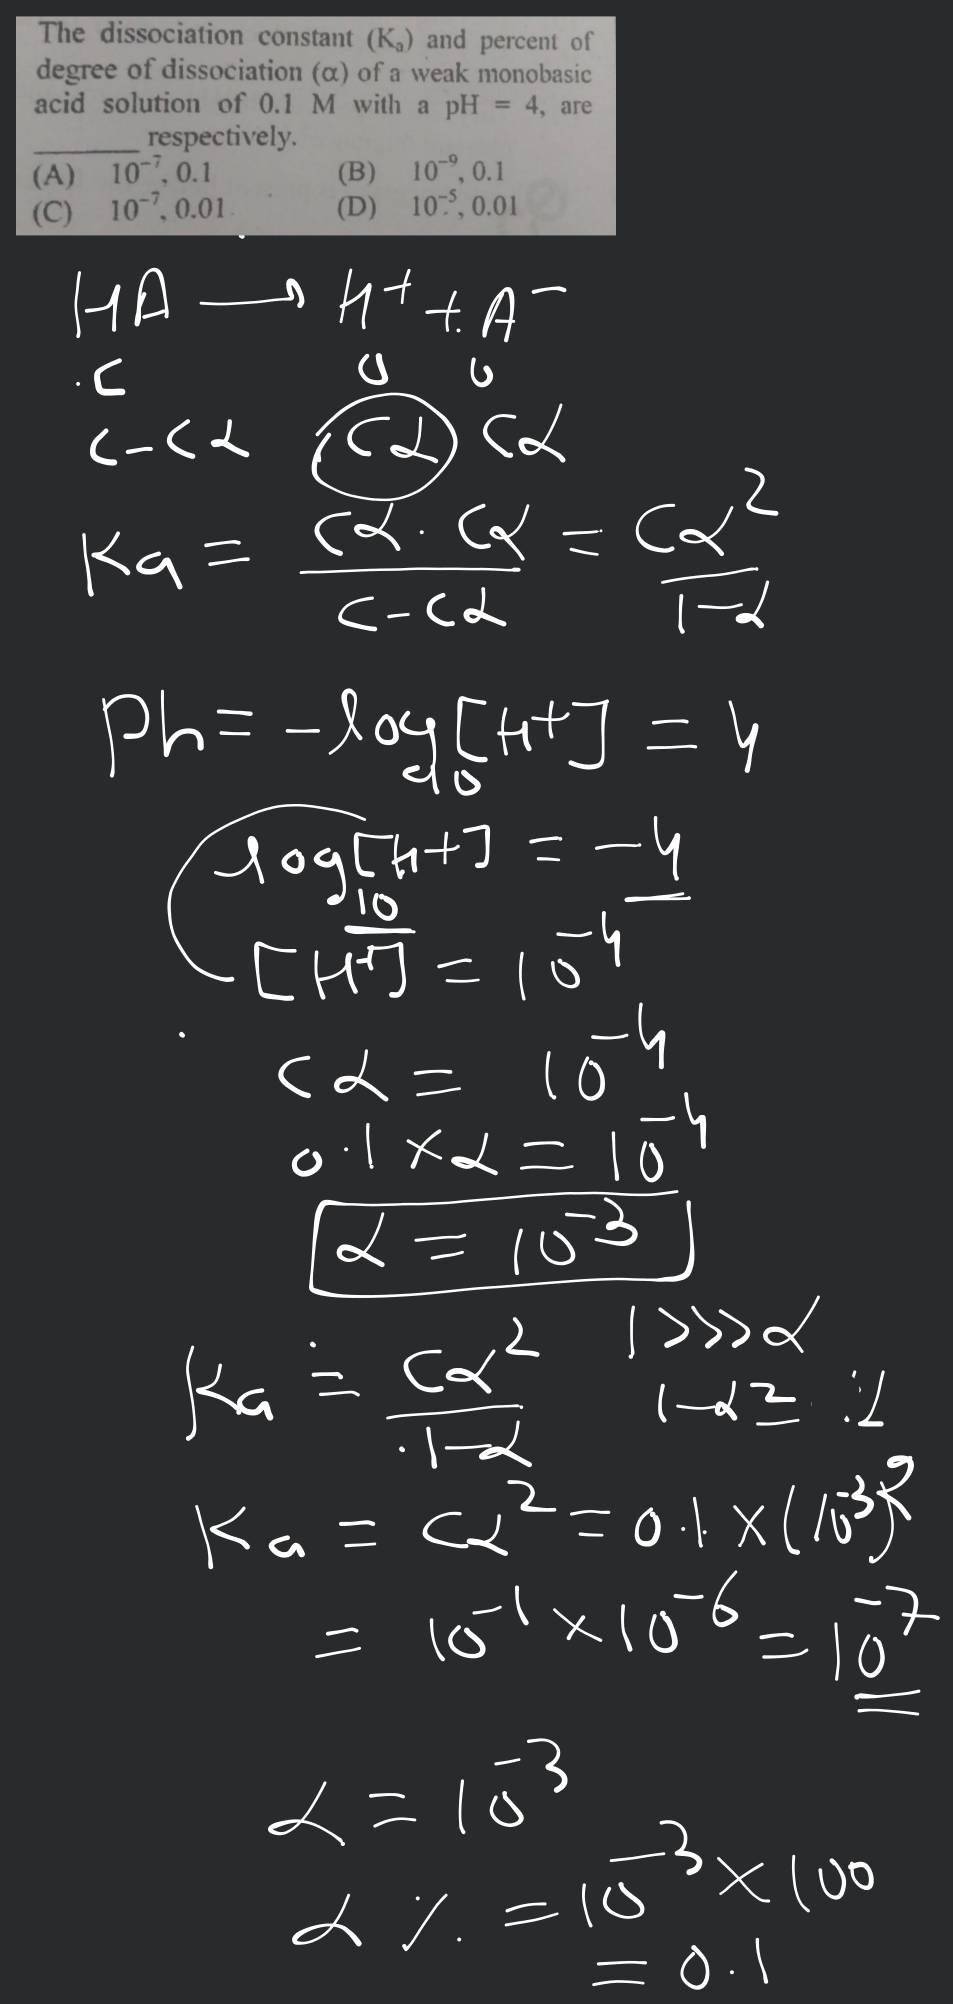 The dissociation constant (Kₐ) and percent of
degree of dissociation (α) of a weak monobasic
acid solution of 0.1 M with a pH = 4, are
______ respectively.
(A) 10⁻⁷, 0.1 (B) 10⁻⁹, 0.1
(C) 10⁻⁷, 0.01 (D) 10⁻⁵, 0.01
HA ⟶ H⁺ + A⁻
C 0 0
C-Cα Cα Cα
Ka = Cα·Cα/C-Cα = Cα²/1-α
Ph = -log₁₀[H+] = 4
log₁₀[H+] = -4
[H⁺] = 10⁻⁴
Cα = 10⁻⁴
0.1 × α = 10⁻⁴
α = 10⁻³
Ka = Cα²/1-α 1>>>α
1-α = 1
Ka = Cα² = 0.1 × (10⁻³)²
= 10⁻¹ × 10⁻⁶ = 10⁻⁷
α = 10⁻³
α % = 10⁻³ × 100
= 0.1